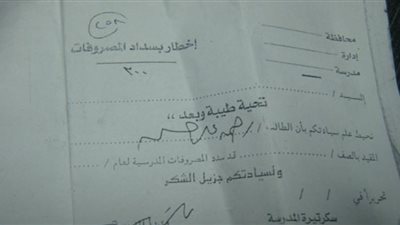 محافظة
إدارة
مدرسة
إخطار بسداد المصروفات
٢٠٠
السيد /
تحية طيبة وبعد ,,
نحيط علم سيادتكم بأن الطالب /
المقيد بالصف / قد سدد المصروفات المدرسية لعام /
ولسيادتكم جزيل الشكر
تحريراً في / /
سكرتيرة المدرسة